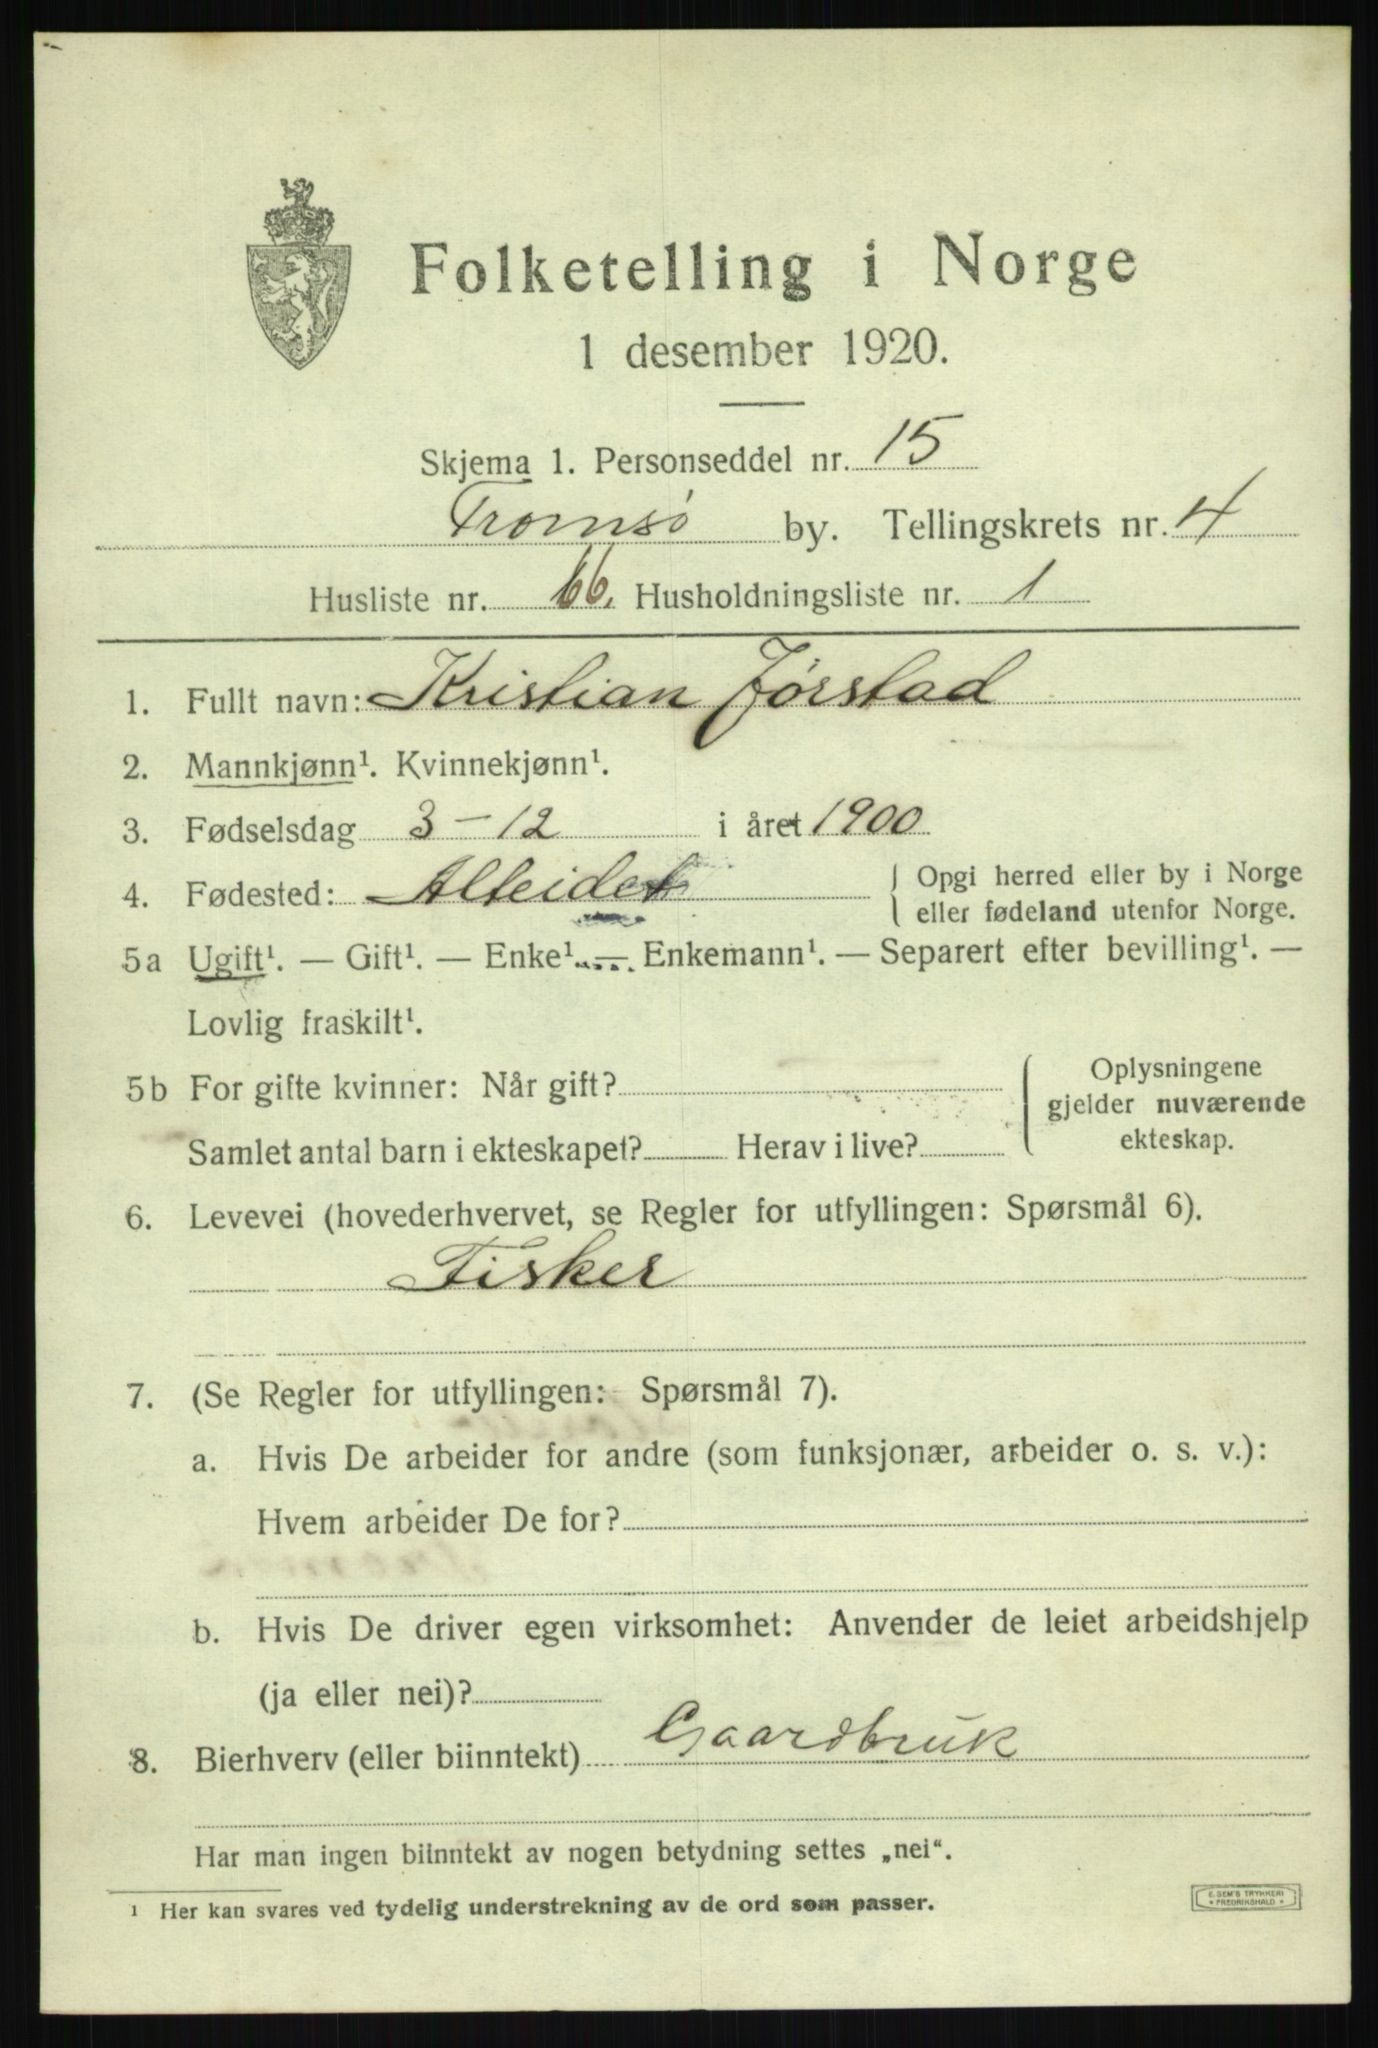 Folketelling i Norge
1 desember 1920.
Skjema 1. Personseddel nr. 15
Tromsø by. Tellingskrets nr. 4
Husliste nr. 66. Husholdningsliste nr. 1
1. Fullt navn: Kristian Jørstad
2. Mannkjønn¹. Kvinnekjønn¹.
3. Fødselsdag 3-12 i året 1900
4. Fødested: Alteidet { Opgi herred eller by i Norge
eller fødeland utenfor Norge.
5a Ugift¹. — Gift¹. — Enke¹. — Enkemann¹. — Separert efter bevilling¹. —
Lovlig fraskilt¹.
5b For gifte kvinner: Når gift? { Oplysningene
gjelder nuværende
Samlet antal barn i ekteskapet? Herav i live? ekteskap.
6. Levevei (hovederhvervet, se Regler for utfyllingen: Spørsmål 6).
Fisker
7. (Se Regler for utfyllingen: Spørsmål 7).
a. Hvis De arbeider for andre (som funksjonær, arbeider o. s. v.):
Hvem arbeider De for?
b. Hvis De driver egen virksomhet: Anvender de leiet arbeidshjelp
(ja eller nei)?
8. Bierhverv (eller biinntekt) Gaardbruk
Har man ingen biinntekt av nogen betydning settes „nei“.
¹ Her kan svares ved tydelig understrekning av de ord som passer.
E. SEM'S TRYKKERI
FREDRIKSHALD